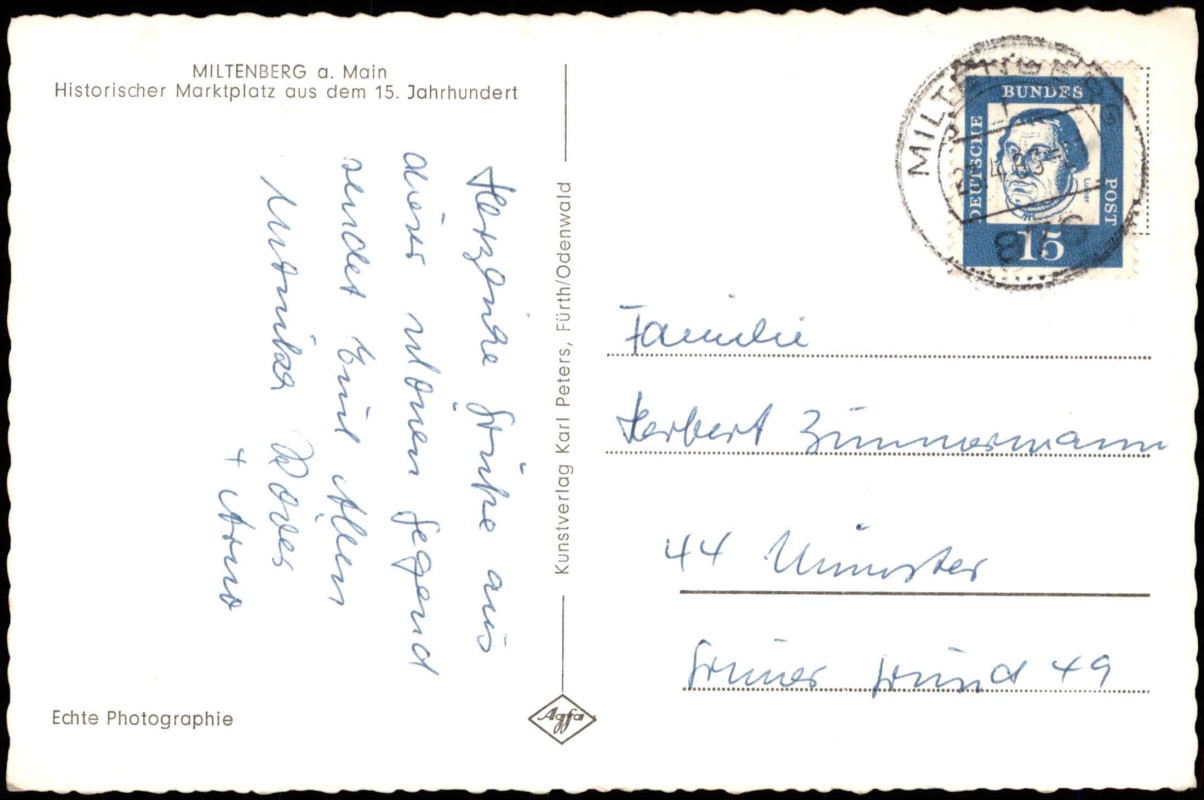 MILTENBERG a. Main
Historischer Marktplatz aus dem 15. Jahrhundert
Herzliche Grüße aus
dieser schönen Gegend
sendet Euch Allen
Monika
+ Arno
Echte Photographie
Kunstverlag Karl Peters, Fürth/Odenwald
Agfa
MILTENBERG
876
DEUTSCHE
BUNDES
POST
Luther
15
Familie
Herbert Zimmermann
44 Münster
Grüner Grund 49